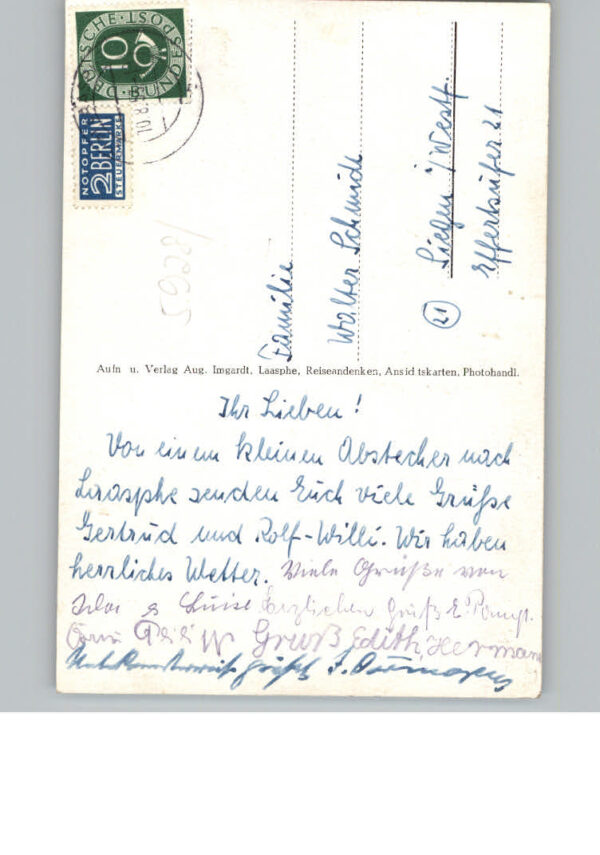 DEUTSCHE BUNDESPOST
10
NOTOPFER
2 BERLIN
STEUERMARKE
Familie
Walter Schmidt
21
Siegen i/Westf.
Effertsufer 21
Aufn u. Verlag Aug. Imgardt, Laasphe, Reiseandenken, Ansichtskarten, Photohandl.
Ihr Lieben!
Von einem kleinen Abstecher nach
Laasphe senden Euch viele Grüße
Gertrud und Rolf-Willi. Wir haben
herrliches Wetter. Viele Grüße von
Luise herzlichen Gruß
Gruß Edith, Hermann